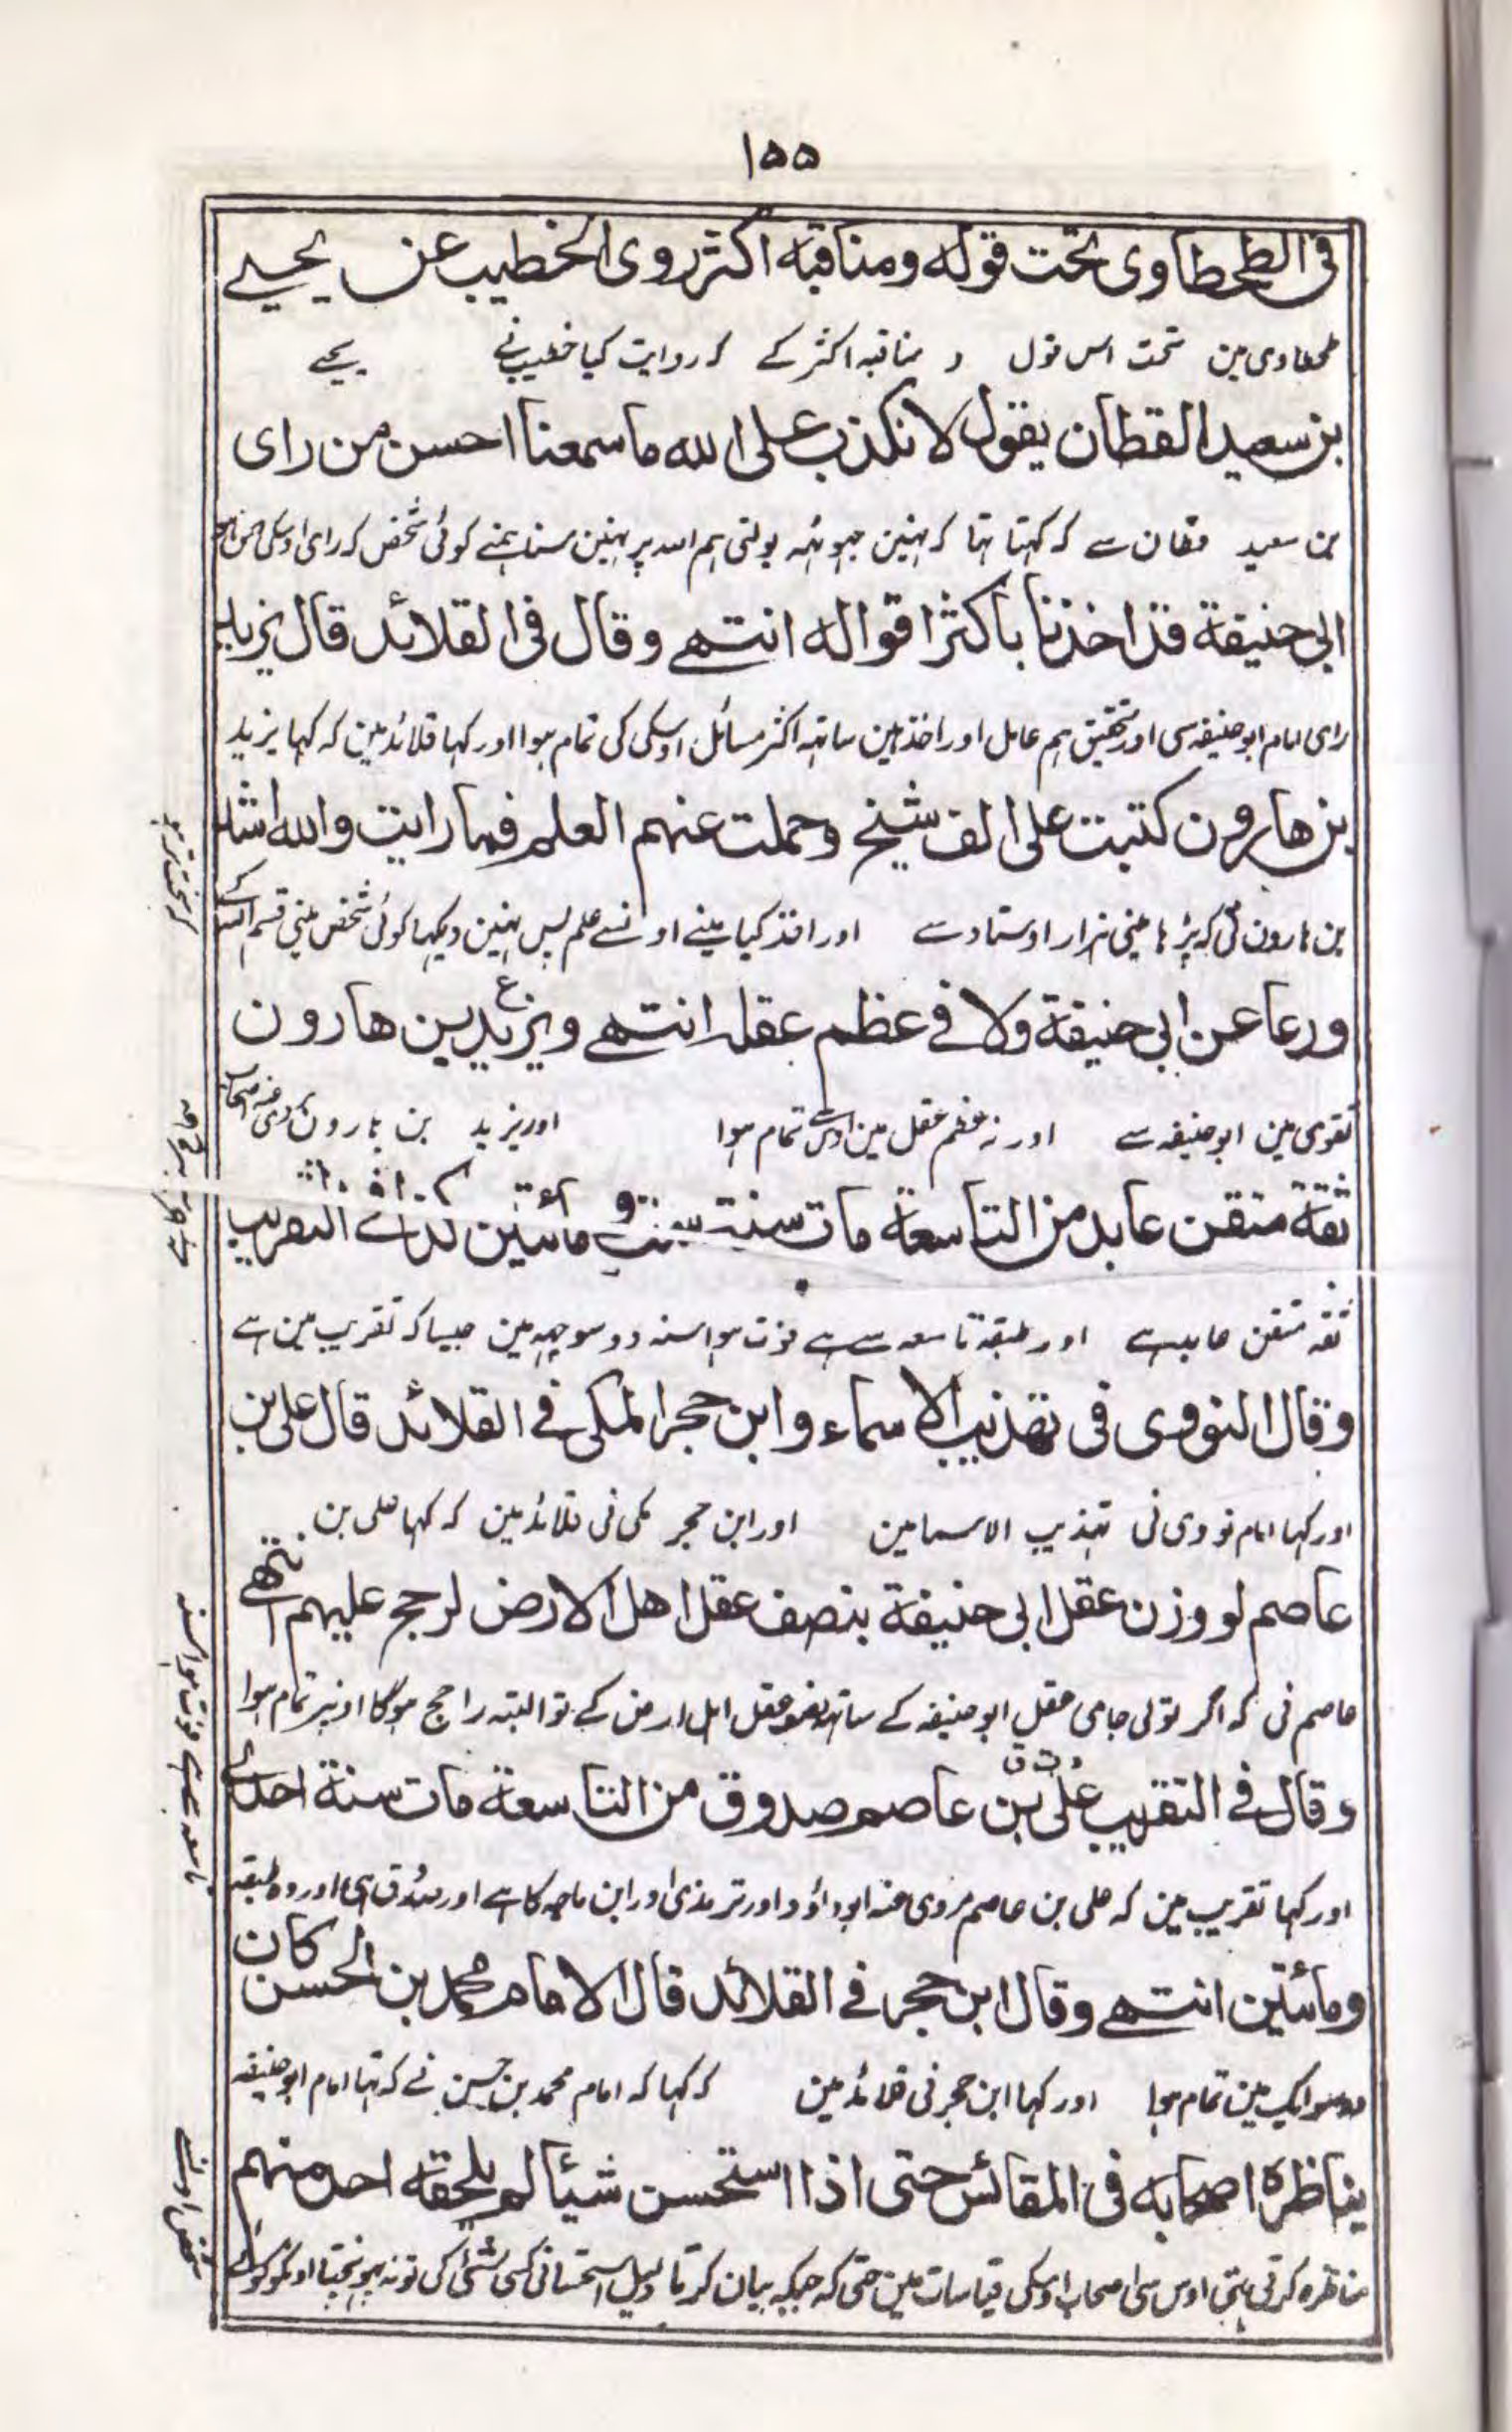 ١٥٥
فی الطحطاوی تحت قوله ومناقبه اکثر روی الخطیب عن یحیے
طحطاوی مین تحت اس قول و مناقبہ اکثر کے کہ روایت کیا خطیب نے یحیے
بن سعید القطان یقول لا نکذب علی الله ما سمعنا احسن من رای
بن سعید قطان سے کہ کہتا تہا کہ نہین جہوٹہہ بولتی ہم اللہ پر نہین سنا ہمنے کوئی شخص کہ رای اوسکی
ابی حنیفة قد اخذنا باکثر اقواله انتهے وقال فی القلائد قال یزید
رای امام ابو حنیفہ سی اور تحقیق ہم عامل اور اخذ ہین ساتہہ اکثر مسائل اوسکی کی تمام ہوا اور کہا قلائد مین کہ کہا یزید
بن هارون کتبت علی الف شیخ وحملت عنهم العلم فما رایت والله اشد
بن ہارون نی کہ پڑہا مینی ہزار اوستاد سے اور اخذ کیا مینے اونسے علم پس نہین دیکہا کوئی شخص مینی قسم اللہ کے
کہ سخت تر ہو
ورعا عن ابی حنیفة ولا فے عظم عقله انتهے ویزید بن هارون
ع
تقوی مین ابو حنیفہ سے اور نہ عظم عقل مین اوس سے تمام ہوا اور یزید بن ہارون
ثقة متقن عابد من التاسعة مات سنة ست ومائتین کذا فے التقریب
ثقہ متقن عابد ہے اور طبقہ تاسعہ سے ہے فوت ہوا سنہ دو سو چہہ مین جیسا کہ تقریب مین ہے
وقال النووی فی تهذیب الاسماء وابن حجر المکی فے القلائد قال علی بن
اور کہا امام نووی نی تہذیب الاسما مین اور ابن حجر مکی نی قلائد مین کہ کہا علی بن
عاصم لو وزن عقل ابی حنیفة بنصف عقل اهل الارض لرجح علیهم انتهے
عاصم نی کہ اگر تولی جاوی عقل ابو حنیفہ کے ساتہہ نصف عقل اہل ارض کے تو البتہ راجح ہوگا اونپر تمام ہوا
وقال فے التقریب علی بن عاصم صدوق من التاسعة مات سنة احدی
د ت ق
اور کہا تقریب مین کہ علی بن عاصم مروی عنہ ابو داؤد اور ترمذی اور ابن ماجہ کا ہے اور صدوق ہی اور وہ طبقہ
تاسعہ سے ہے فوت ہوا سنہ
ومائتین انتهے وقال ابن حجر فے القلائد قال الامام محمد بن الحسن کان
دو سو ایک مین تمام ہوا اور کہا ابن حجر نی قلائد مین کہ کہا کہ امام محمد بن حسن نے کہ تہا امام ابو حنیفہ
یناظره اصحابه فی المقائس حتی اذا استحسن شیئا لم یلحقه احد منهم
مناظرہ کرتی تہی اوس سی اصحاب اوسکی قیاسات مین حتی کہ جبکہ بیان کرتا دلیل استحسانی کسی شئی کی تو نہ پہونچتا اوسکو کوئی
شخص اونسے